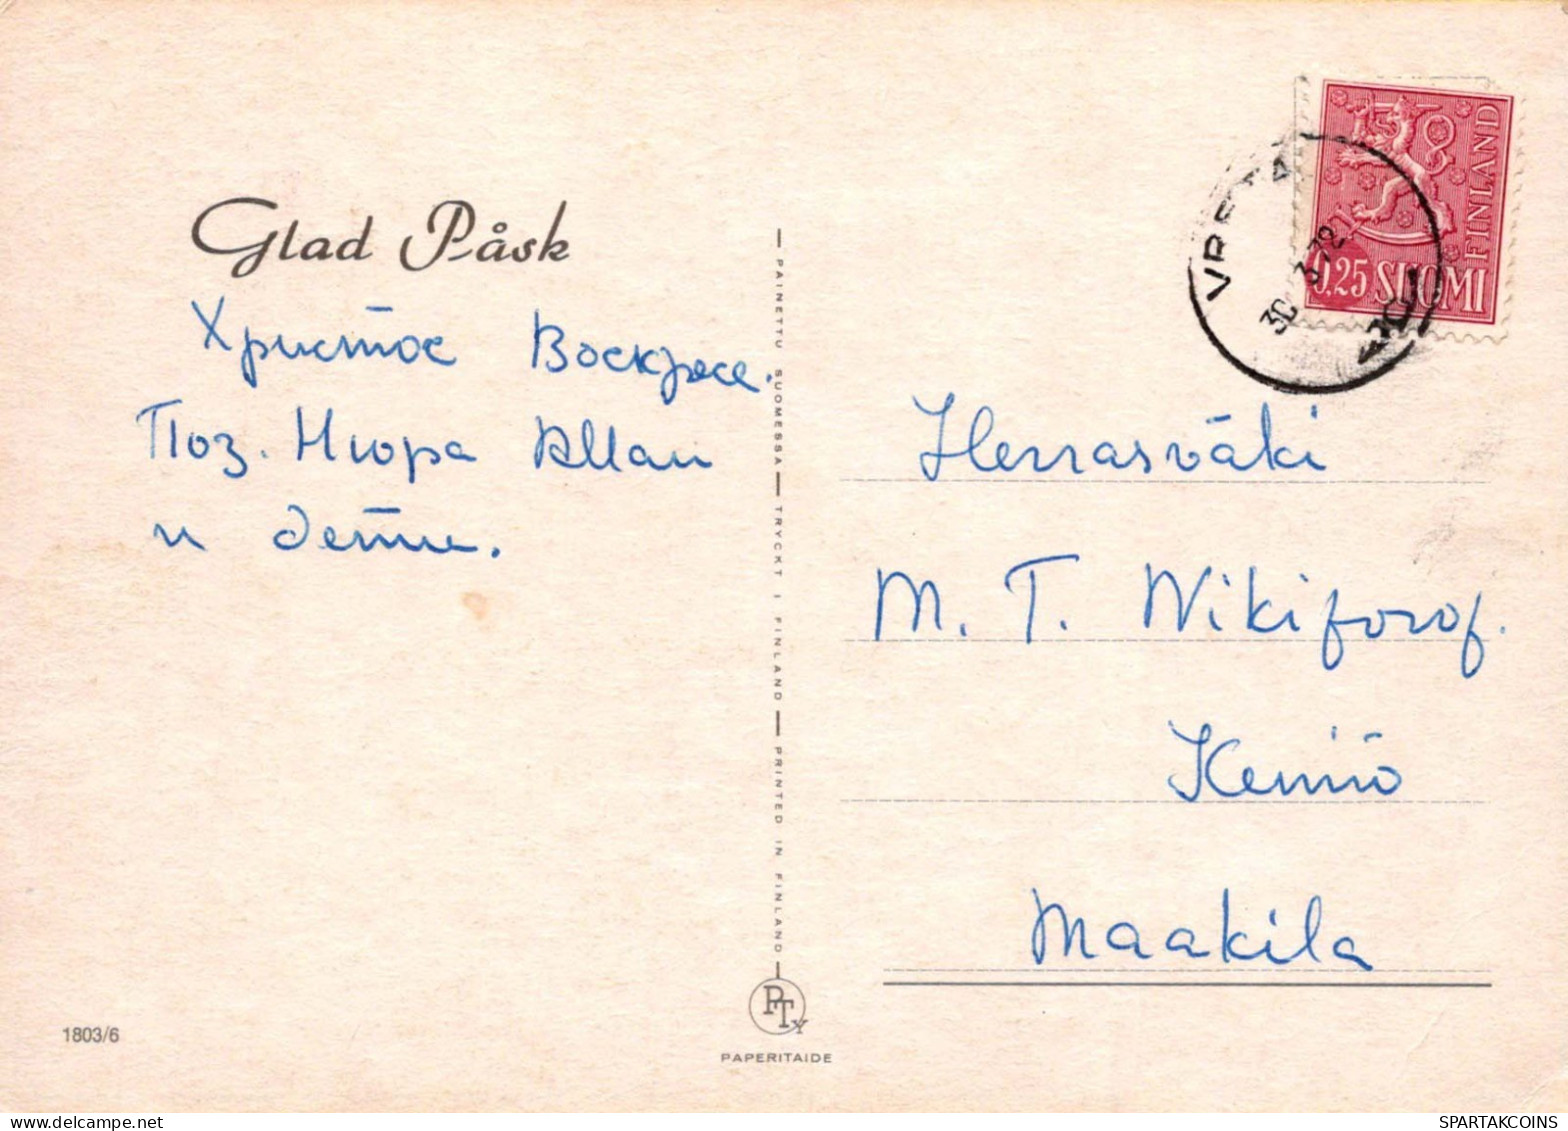 Glad Påsk
Христос Воскресе.
Поз. Нюра Аллан
и дети.
PAINETTU SUOMESSA — TRYCKT I FINLAND — PRINTED IN FINLAND
PTY
PAPERITAIDE
1803/6
FINLAND
0.25 SUOMI
30 3.72
Herrasväki
M. T. Nikiforof.
Keniö
Maakila
SPARTAKCOINS